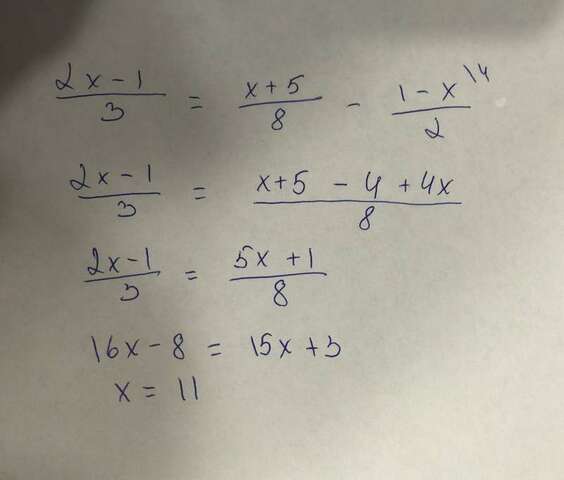 (2x - 1)/3 = (x + 5)/8 - (1 - x)/2 \4
(2x - 1)/3 = (x + 5 - 4 + 4x)/8
(2x - 1)/3 = (5x + 1)/8
16x - 8 = 15x + 3
x = 11